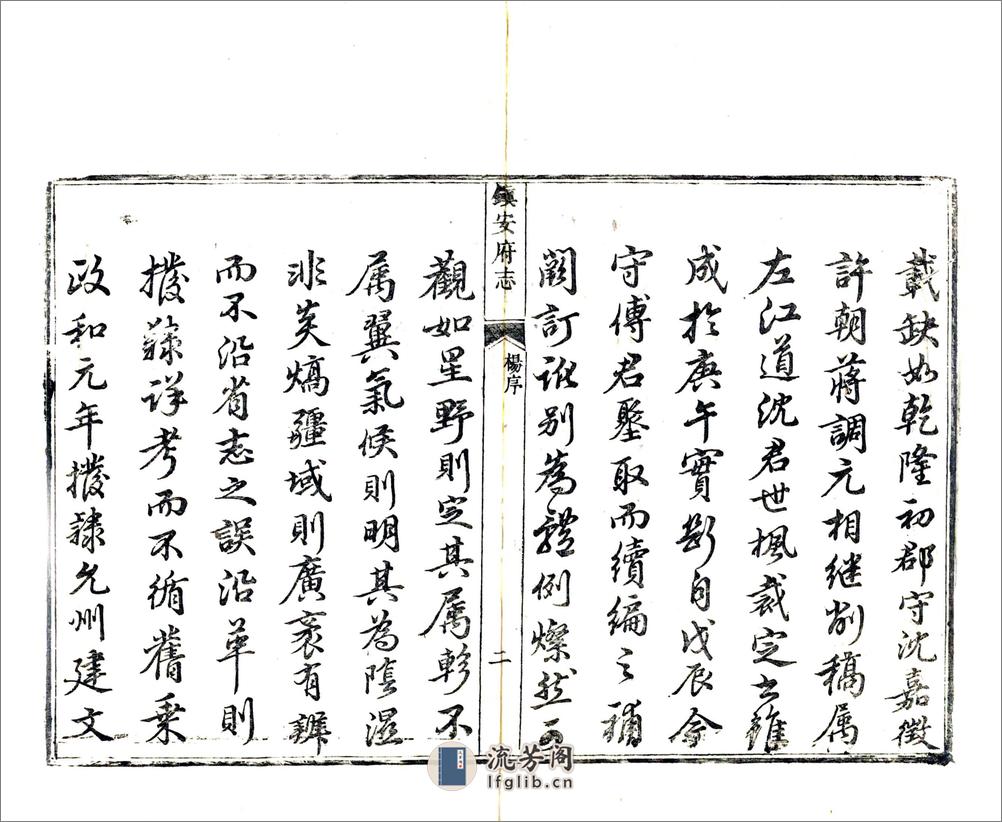 載缺如乾隆初郡守沈嘉徵
許朝蔣調元相繼創稿屬
左江道沈君世楓裁定書雖
成於庚午實斷自戊辰今
守傅君堅取而續編之補
闕訂訛别為體例燦然可
鎮安府志
楊序
二
觀如星野則定其属軫不
属翼氣候則明其為陰濕
非炎熇疆域則廣袤有辨
而不沿省志之誤沿革則
撥隸详考而不循舊乘
政和元年撥隸允州建文
流芳阁
lfglib.cn